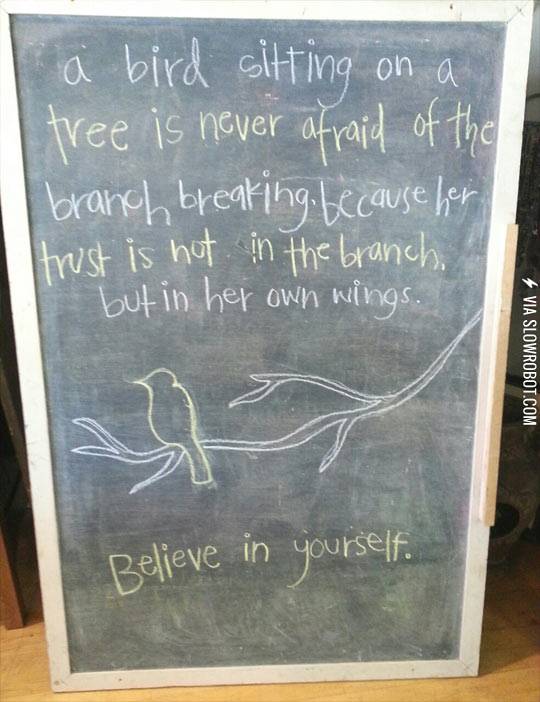 a bird sitting on a
tree is never afraid of the
branch breaking, because her
trust is not in the branch,
but in her own wings.
Believe in yourself.
VIA SLOWROBOT.COM